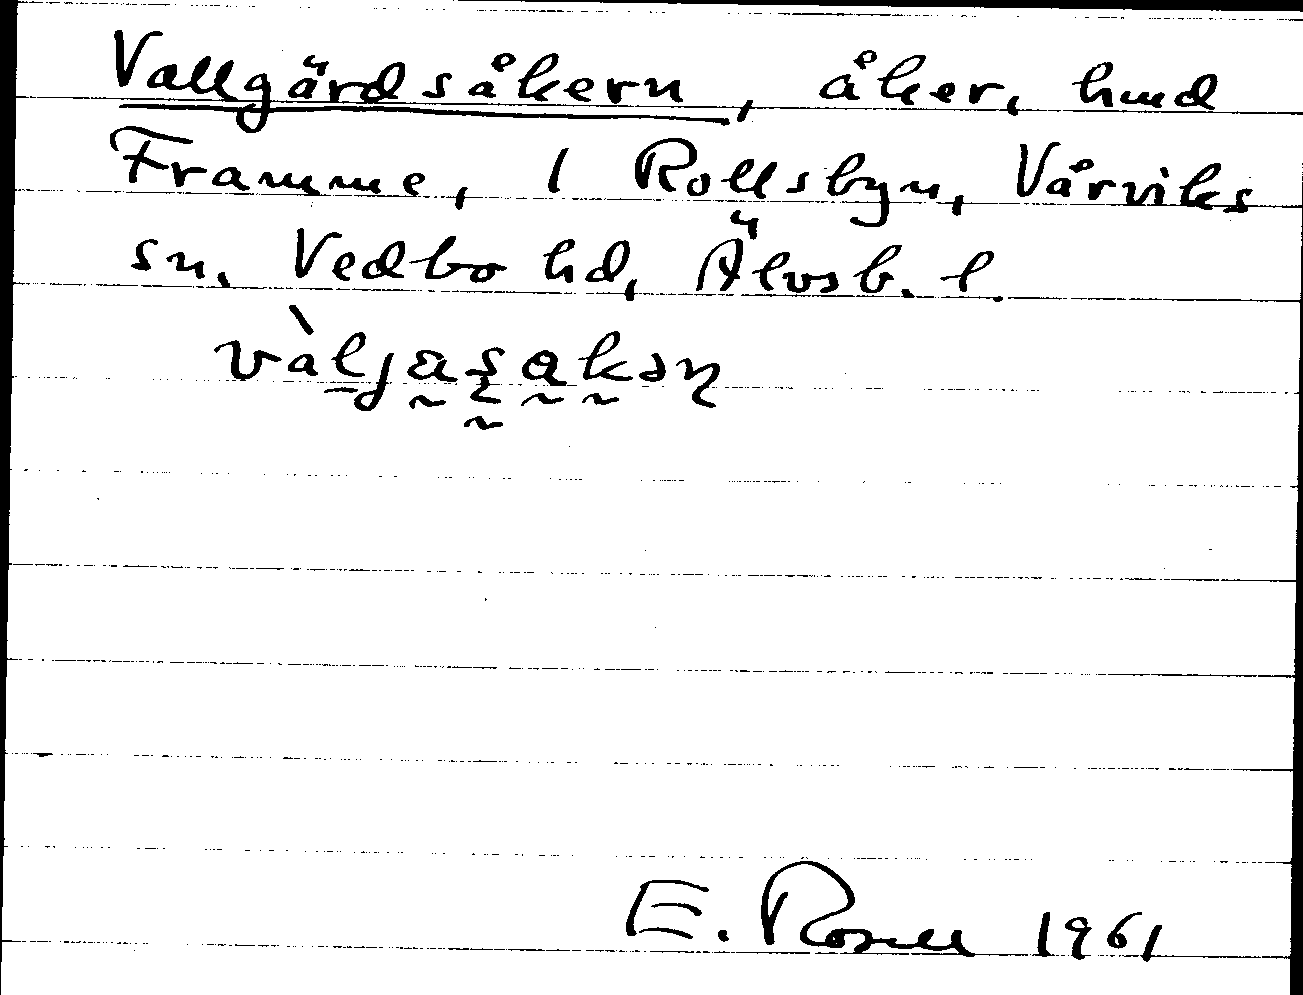 Vallgärdsåkern, åker, hmd
Framme, 1 Rollsbyn, Vårviks
sn. Vedbo hd, Älvsb. l.
E. Rosell 1961